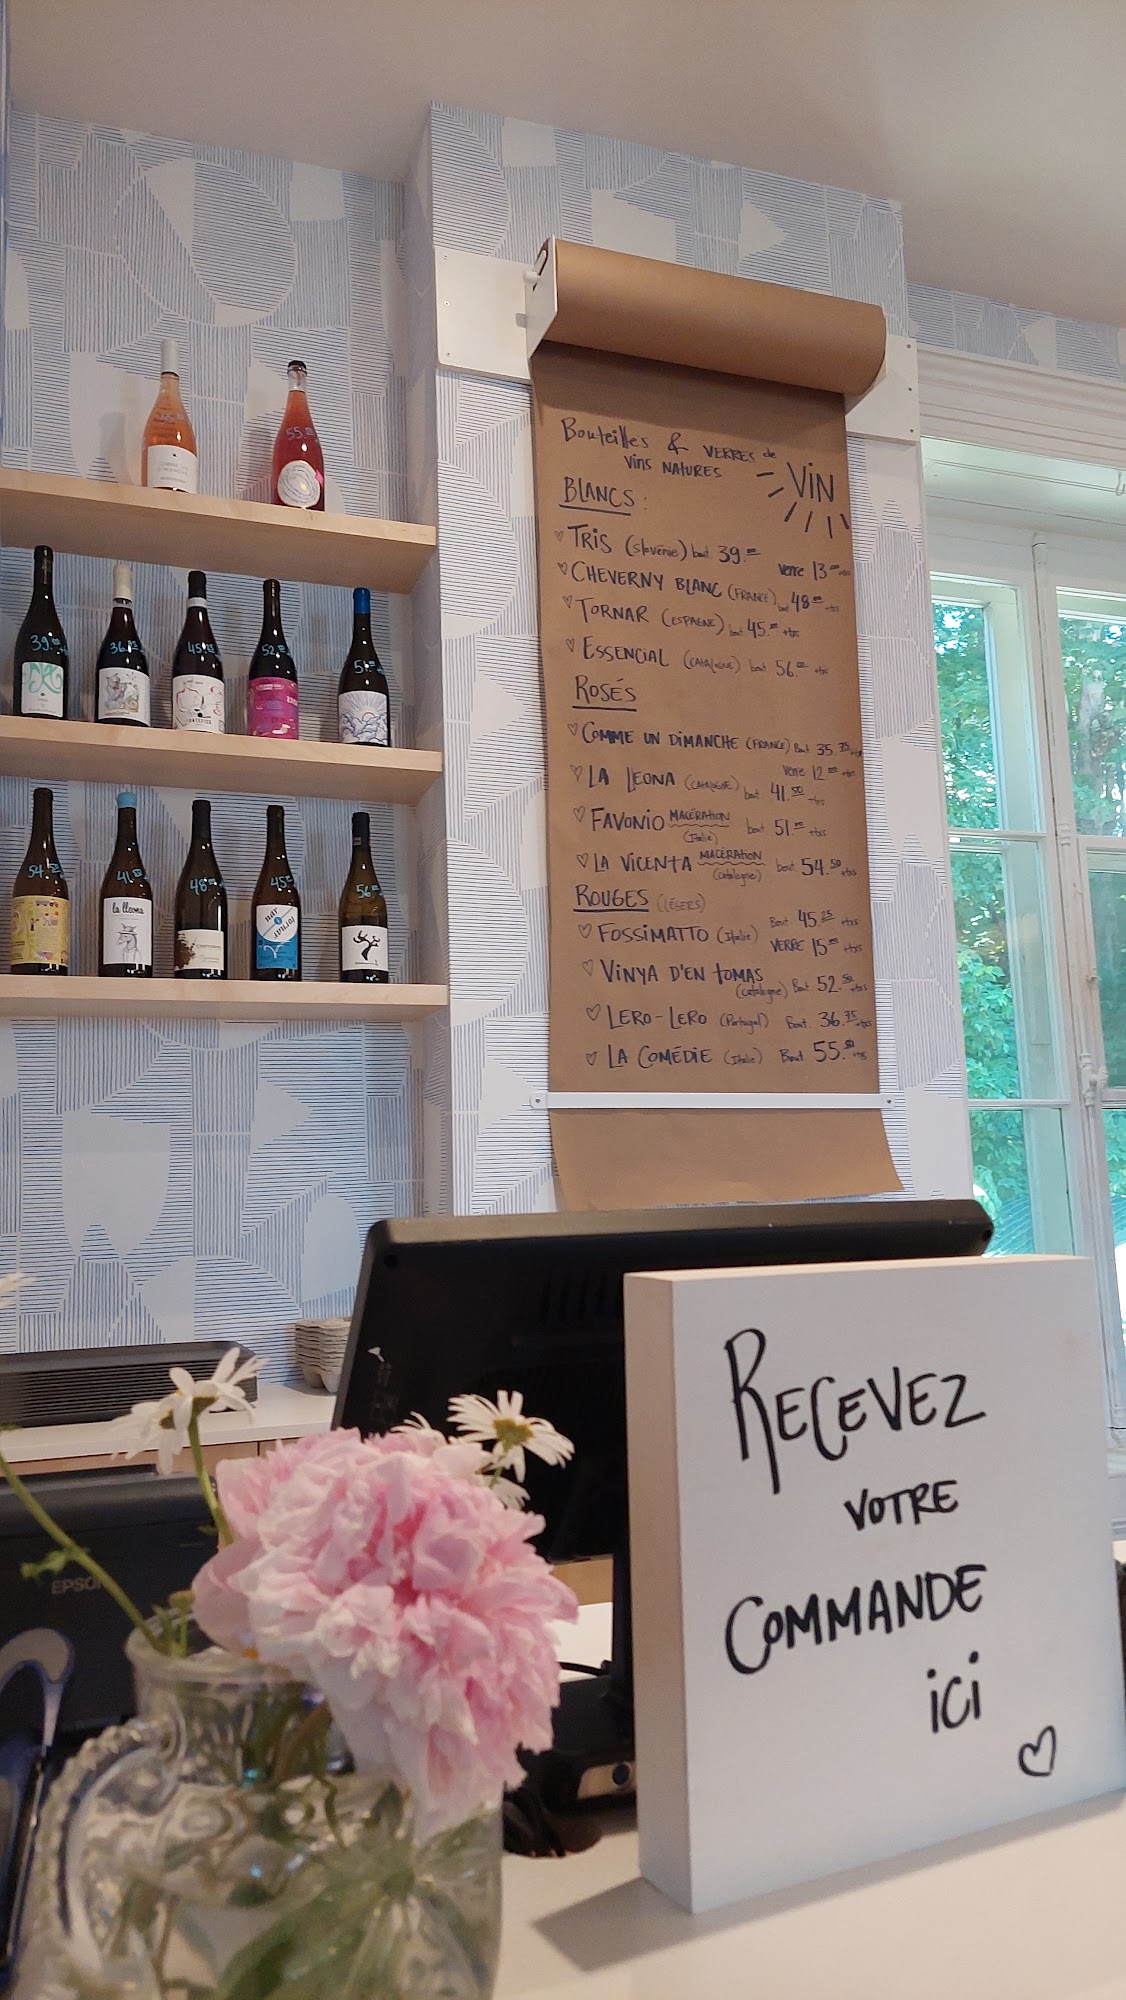 Bouteilles & VERRES de
vins NATURES
VIN
BLANCS:
TRIS (Slovénie) bout. 39.00
verre 13.00 +txs
CHEVERNY BLANC (FRANCE) bout 48.00 +txs
TORNAR (ESPAGNE) bout 45.00 +txs
ESSENCIAL (CATALOGNE) bout 56.00 +txs
ROSÉS
COMME UN DIMANCHE (FRANCE) Bout 35.75 +txs
Verre 12.00 +txs
LA LEONA (CATALOGNE) bout. 41.50 +txs
FAVONIO MACÉRATION
(Italie) bout. 51.00 +txs
LA VICENTA MACÉRATION
(Catalogne) bout. 54.50 +txs
ROUGES (LÉGERS)
FOSSIMATTO (Italie) Bout. 45.25 +txs
VERRE 15.00 +txs
VINYA D'EN TOMAS
(Catalogne) Bout 52.50 +txs
LERO-LERO (Portugal) Bout. 36.75 +txs
LA COMÉDIE (Italie) Bout 55.00 +txs
55.
39.00
36.75
45.
52.
51.
54.
41.
48.
45
56
la lleona
nar
tornar
EPSON
RECEVEZ
VOTRE
COMMANDE
ici